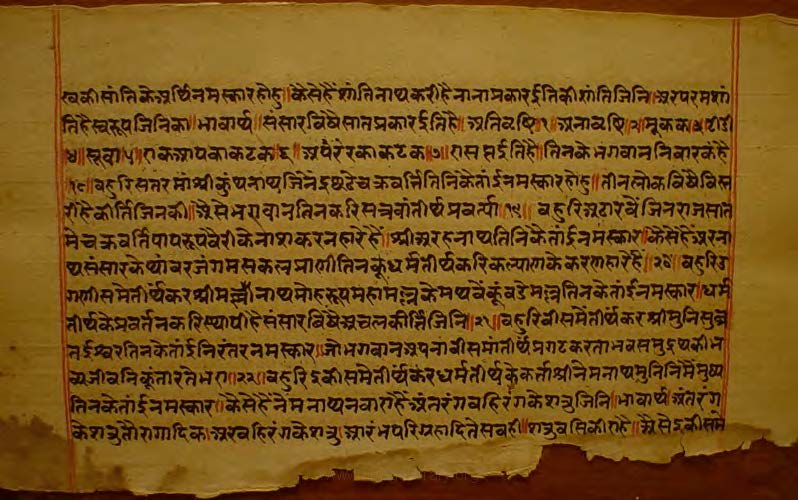 स्वकीसांतिकेअर्थिनमस्कारहोहु॥कैसेहैंशांतिनाथकरीहैनानाप्रकारईतिकीशांतिजिनि॥अरपरमशां
तिहैस्वरूपजिनिका॥भावार्थ॥संसारविषैसातप्रकारईतिहै॥अतिवृष्टि१॥अनावृष्टि२॥मूकक३॥टीडी
४॥सूवा५॥राकआपकाकटक६॥अपैरंरकाकटक॥७॥रासप्तईतिहै॥तिनकेभगवाननिवारकहै
॥१८॥बहुरिसतरमांश्रीकुंथनाथजिनेंद्रछठेचक्रवर्त्तितिनिकेतांईनमस्कारहोहु॥तीनलोकविषैविस्त
रीहैकीर्त्तिजिनकी॥अैसेभगवानतिनकरिसत्रवांतीर्थप्रवर्त्त्या॥१९॥बहुरिअठारवेंजिनराजसात
मेचक्रवर्तिपापरूपवैरीकेनाशकरनहारेहैं॥श्रीअरहनाथतिनिकेतांईनमस्कार॥कैसेहैंअरना
थसंसारकेथांवरजंगमसकलप्राणीतिनकूंधर्मतीर्थकरिकल्याणकेकरणहारहैं॥२०॥बहुरिउ
गणीसमेतीर्थंकरश्रीमल्लीनाथमोहरूपमहामल्लकेमथवेकूंवडेमल्लतिनकेतांईनमस्कार॥धर्म
तीर्थकेप्रवर्तनकरिस्थापीहैसंसारविषैअचलकीर्त्तिजिनि॥२१॥बहुरिवीसमेंतीर्थंकरश्रीमुनिसुव्र
तईश्वरतिनकेतांईनिरंतरनमस्कार॥जोभगवानअपनावीसमांतीर्थप्रगटकरताभवसमुद्रथकीभ
व्यजीवनिकूंतारतेभए॥२२॥बहुरिइकीसमेतीर्थंकरधर्मतीर्थकेकर्त्ताश्रीनेमनाथमुनिनिमैंमुख्य
तिनकेतांईनमस्कार॥कैसेहैंनेमनाथनवाराहैंअंतरंगवहिरंगकेशत्रुजिनि॥भावार्थअंतरंग
केशत्रुतौरागादिक॥अरवहिरंगकेशत्रुआरंभपरिग्रहादितेसवही॥शत्रुवसिकीराहै॥अैसेइकीसमे